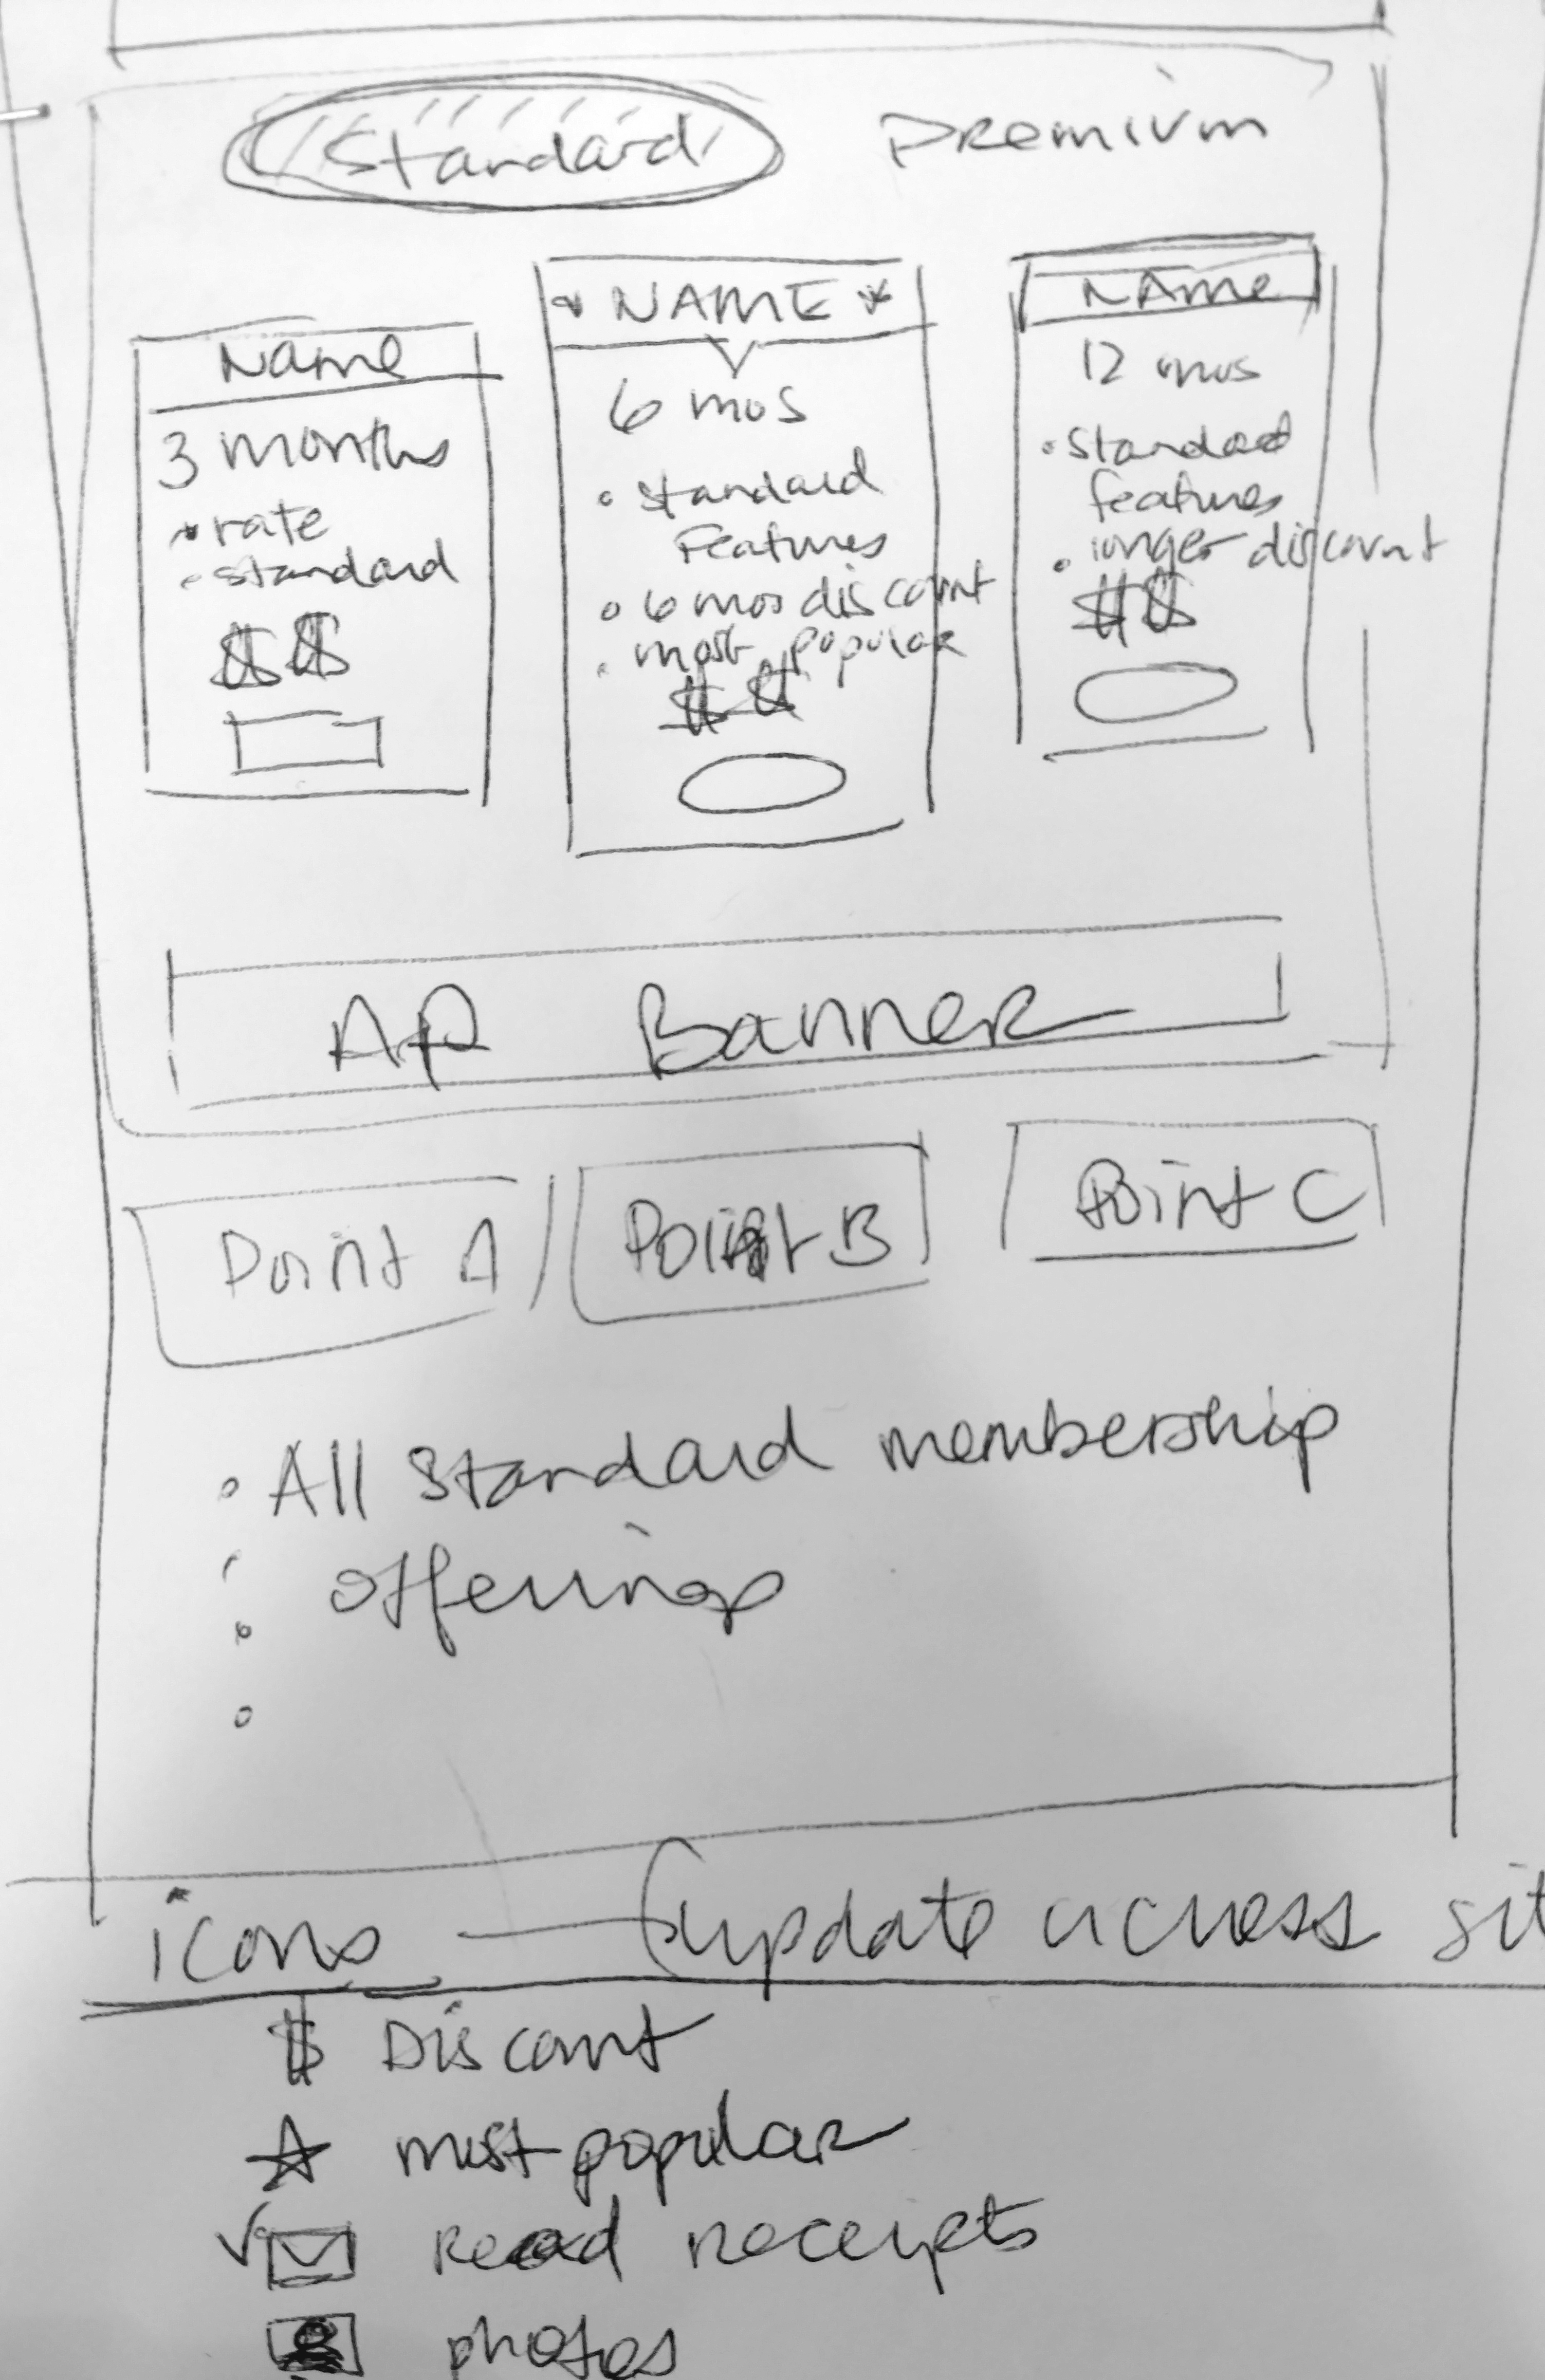 Standard Premium
Name
3 months
• rate
• standard
$$
* NAME *
6 mos
• standard
Features
• 6 mos discount
• most popular
$$
NAME
12 mos
• Standard
features
• longer discount
$$
AP Banner
Point A
Point B
Point C
• All Standard membership
offerings
icons — (update across sit
$ Discount
most popular
Read receipts
photos